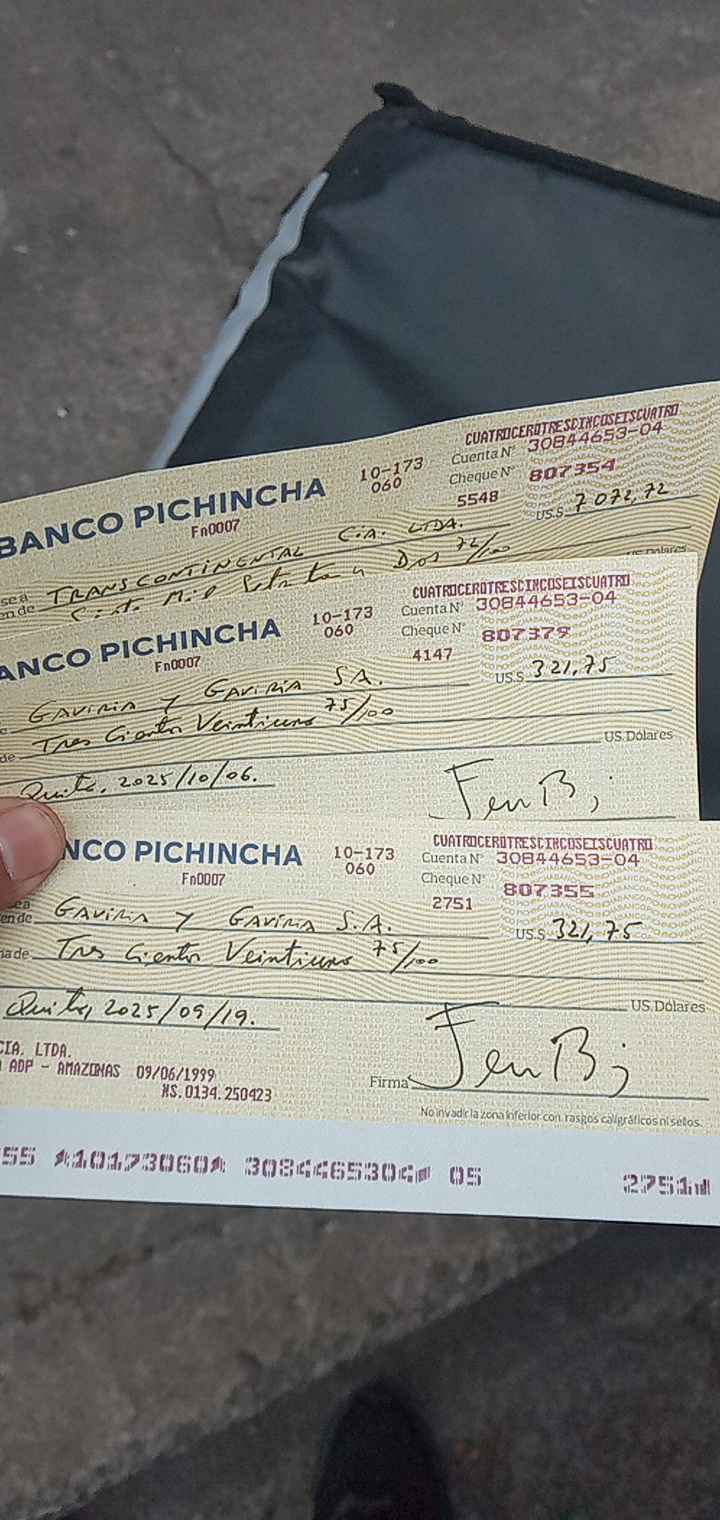 CUATROCEROTRESCINCOSEISCUATRO
BANCO PICHINCHA 10-173 Cuenta Nº 30844653-04
Fn0007 060 Cheque Nº 807354
5548 US.$ 7 072,72
TRANSCONTINENTAL CIA. LTDA.
en de Mil y Dos 72/100
US Dólares
CUATROCEROTRESCINCOSEISCUATRO
ANCO PICHINCHA 10-173 Cuenta Nº 30844653-04
Fn0007 060 Cheque Nº 807379
4147
GAVIRIA Y GAVIRIA SA. US.$ 321,75
de Tres Cientos Veintiuno 75/100
US. Dólares
Quito, 2025/10/06.
CUATROCEROTRESCINCOSEISCUATRO
NCO PICHINCHA 10-173 Cuenta Nº 30844653-04
Fn0007 060 Cheque Nº 807355
2751
en de GAVIRIA Y GAVIRIA S.A. US.$ 321,75
ma de Tres Cientos Veintiuno 75/100
US. Dólares
Quito, 2025/09/19.
CIA. LTDA.
ADP - AMAZONAS 09/06/1999
XS.0134.250423
Firma
No invadir la zona inferior con rasgos caligráficos ni sellos.
55 10173060 3084465304 05 2751